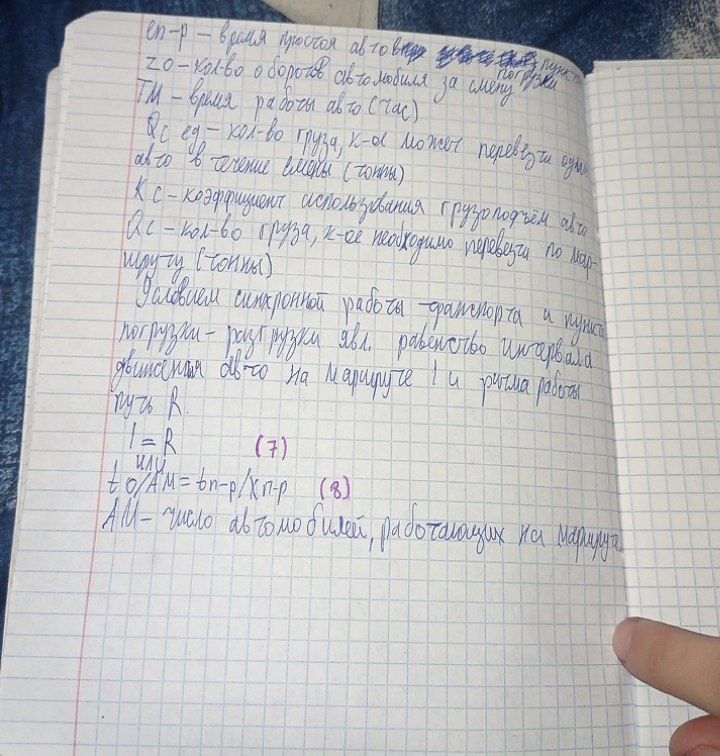 tп-р – время простоя авто в пункте
погрузки
zо – кол-во оборотов автомобиля за смену
ТМ – время работы авто (час)
Qс ед – кол-во груза, к-ое может перевезти одним
авто в течение смены (тонны)
Кс – коэффициент использования грузоподъём. авто
Qс – кол-во груза, к-ое необходимо перевезти по мар-
шруту (тонны)
Условием синхронной работы транспорта и пункта
погрузки – разгрузки явл. равенство интервала
движения авто на маршруте I и ритма работы
путь R.
I = R (7)
или
tо/АМ = tп-р/Хп-р (8)
АМ – число автомобилей, работающих на маршруте